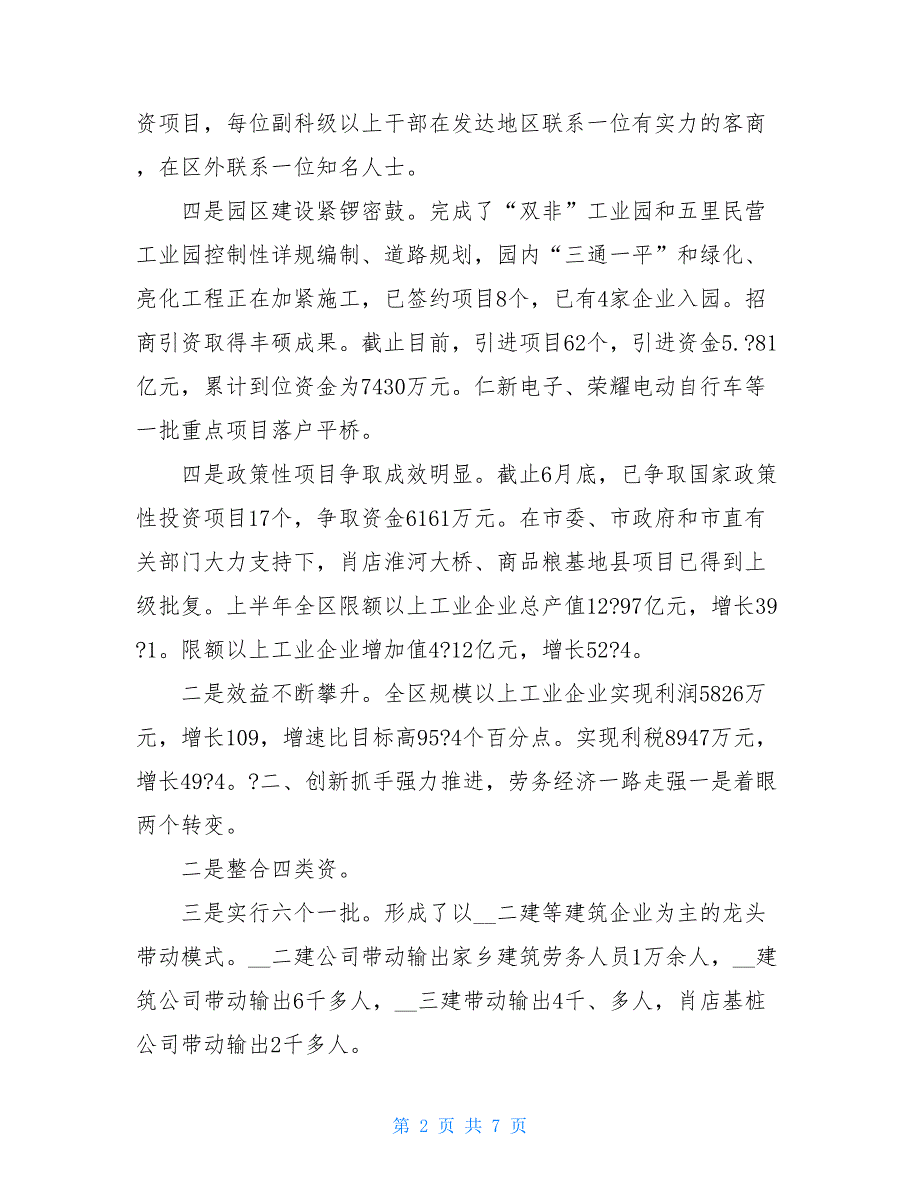 资项目，每位副科级以上干部在发达地区联系一位有实力的客商
，在区外联系一位知名人士。
四是园区建设紧锣密鼓。完成了“双非”工业园和五里民营
工业园控制性详规编制、道路规划，园内“三通一平”和绿化、
亮化工程正在加紧施工，已签约项目8个，已有4家企业入园。招
商引资取得丰硕成果。截止目前，引进项目62个，引进资金5.?81
亿元，累计到位资金为7430万元。仁新电子、荣耀电动自行车等
一批重点项目落户平桥。
四是政策性项目争取成效明显。截止6月底，已争取国家政策
性投资项目17个，争取资金6161万元。在市委、市政府和市直有
关部门大力支持下，肖店淮河大桥、商品粮基地县项目已得到上
级批复。上半年全区限额以上工业企业总产值12?97亿元，增长39
?1。限额以上工业企业增加值4?12亿元，增长52?4。
二是效益不断攀升。全区规模以上工业企业实现利润5826万
元，增长109，增速比目标高95?4个百分点。实现利税8947万元，
增长49?4。?二、创新抓手强力推进，劳务经济一路走强一是着眼
两个转变。
二是整合四类资。
三是实行六个一批。形成了以__二建等建筑企业为主的龙头
带动模式。__二建公司带动输出家乡建筑劳务人员1万余人，__建
筑公司带动输出6千多人，__三建带动输出4千、多人，肖店基桩
公司带动输出2千多人。
第 2 页 共 7 页